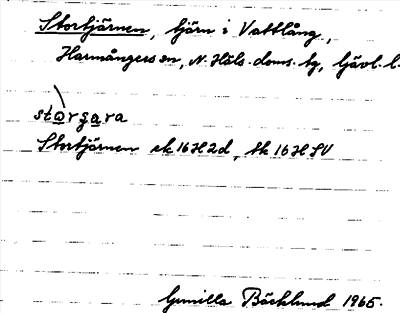 Stortjärnen, tjärn i Vattlång,
Harmångers sn, N. Häls. doms. tg, Gävl. l.
storgara
Stortjärnen ek 16H2d, tk 16H SV
Gunilla Bäcklund 1965.